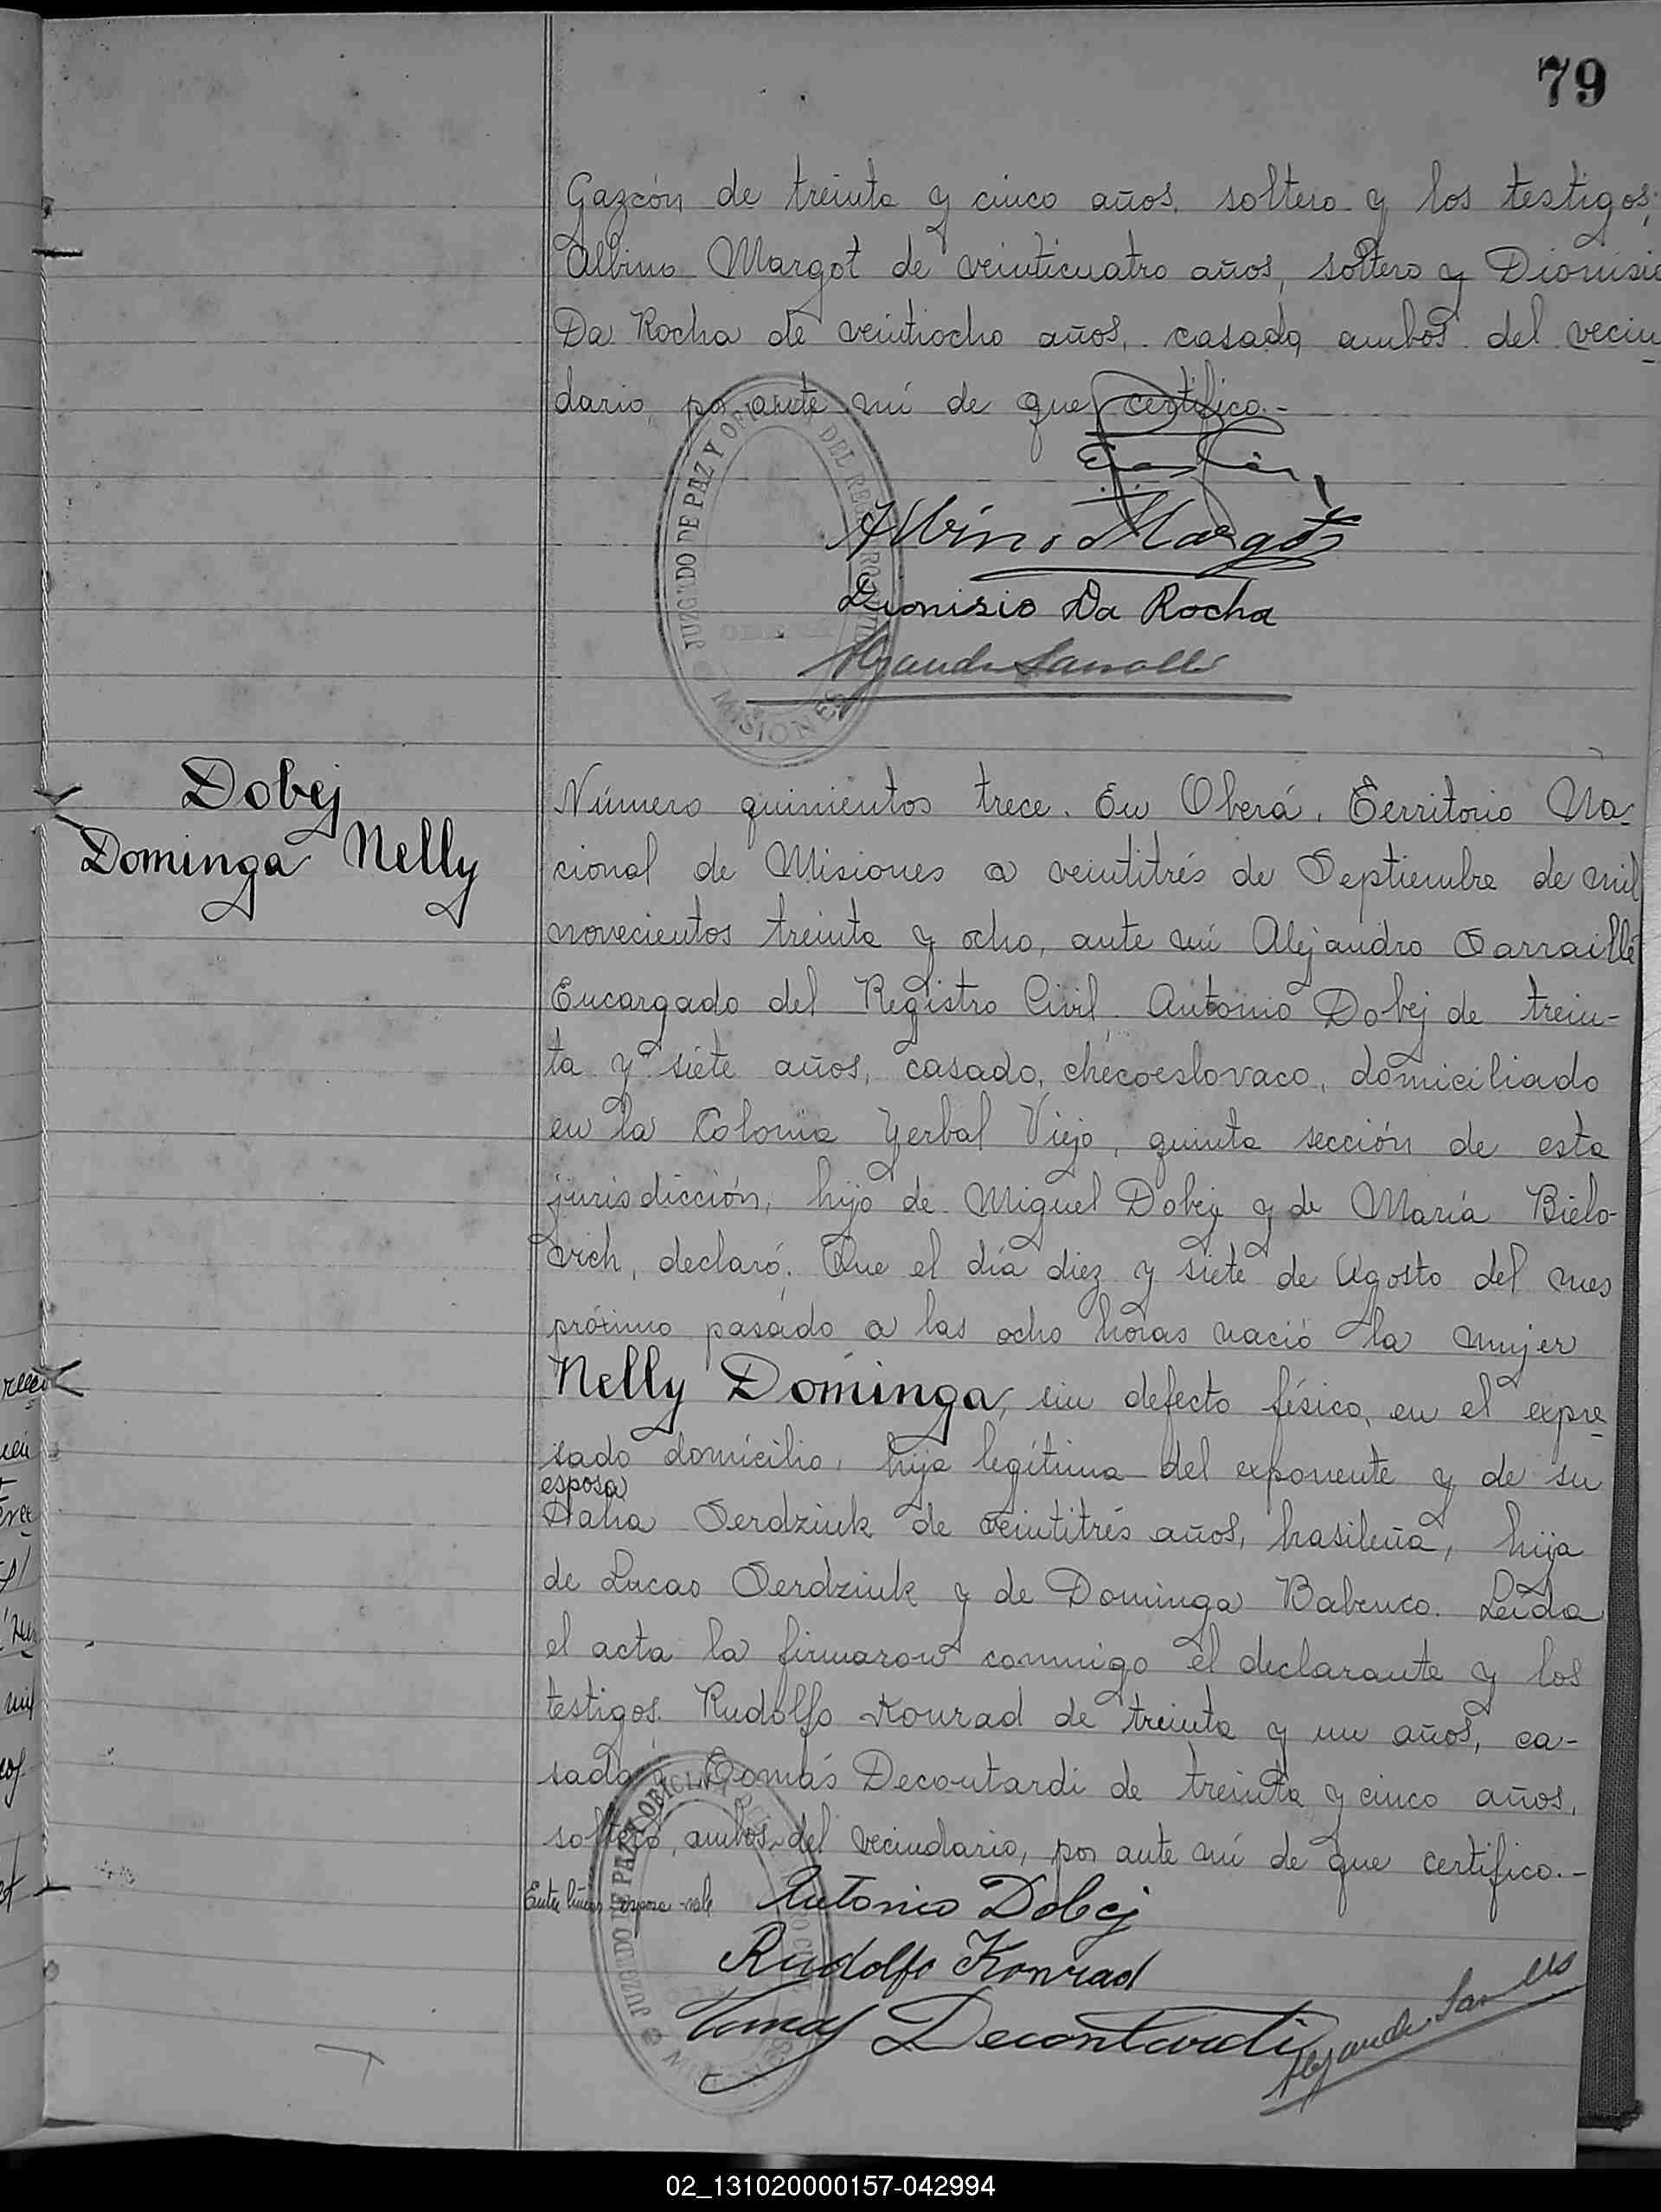 79
Gazcón de treinta y cinco años, soltero y los testigos:
Albino Margot de veinticuatro años, soltero y Dionisio
Da Rocha de veintiocho años, casado, ambos del vecin-
dario, por ante mí de que certifico.-
JUZGADO DE PAZ Y OFICINA DEL REGISTRO
MISIONES
Albino Margot
Dionisio Da Rocha
Dobej
Dominga Nelly
Número quinientos trece. En Oberá, Territorio Na-
cional de Misiones a veintitrés de Septiembre de mil
novecientos treinta y ocho, ante mí Alejandro Sarraillé
Encargado del Registro Civil. Antonio Dobej de trein-
ta y siete años, casado, checoeslovaco, domiciliado
en la Colonia Yerbal Viejo, quinta sección de esta
jurisdicción, hijo de Miguel Dobej y de María Bielo-
vich, declaró: Que el día diez y siete de Agosto del mes
próximo pasado a las ocho horas nació la mujer
Nelly Dominga, sin defecto físico, en el expre-
sado domicilio, hija legítima del exponente y de su
esposa
Serdziuk de veintitrés años, brasileña, hija
de Lucas Serdziuk y de Dominga Babenco. Leída
el acta la firmaron conmigo el declarante y los
testigos: Rudolfo Konrad de treinta y un años, ca-
sado y Tomás Decoutardi de treinta y cinco años,
soltero, ambos del vecindario, por ante mí de que certifico.-
Entre líneas esposa-vale
Antonio Dobej
Rudolfo Konrad
Tomas Decontardi
JUZGADO DE PAZ Y OFICINA
02_131020000157-042994